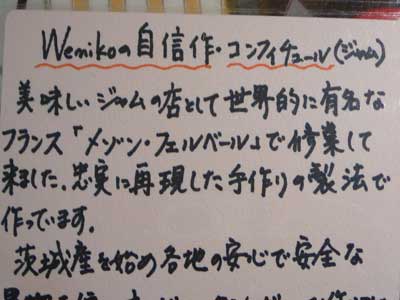 Wemikoの自信作・コンフィチュール(ジャム)
美味しいジャムの店として世界的に有名な
フランス「メゾン・フェルベール」で修業して
来ました。忠実に再現した手作りの製法で
作っています。
茨城産を始め各地の安心で安全な